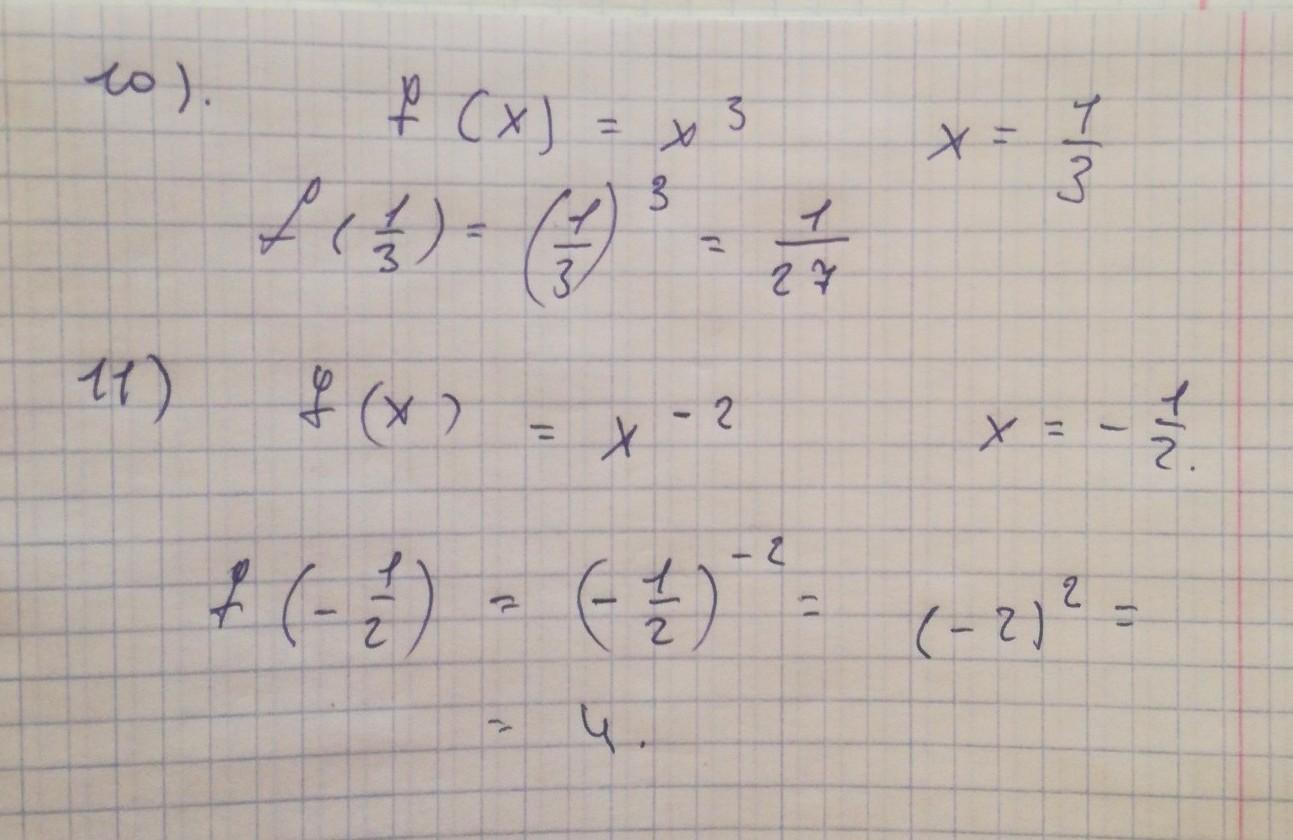 10). f(x) = x³ x = 1/3
f(1/3) = (1/3)³ = 1/27
11) f(x) = x⁻² x = -1/2.
f(-1/2) = (-1/2)⁻² = (-2)² =
= 4.